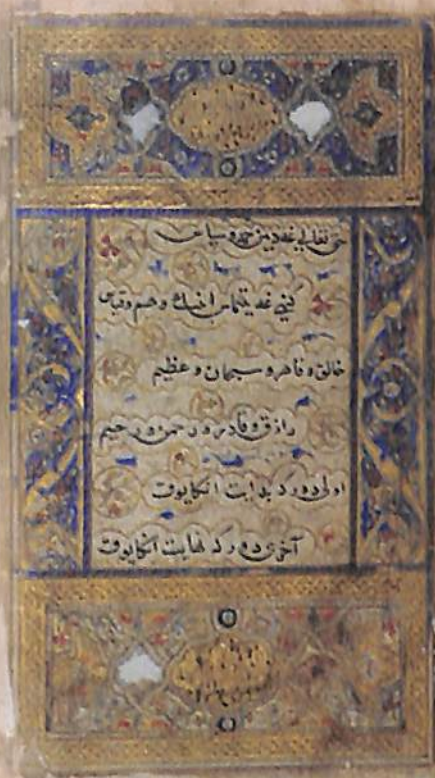 حق تعالی غه دیین حمد و سپاس
کنهی غه یتماس انینك وهم و قیاس
خالق و قاهر و سبحان و عظیم
رازق و قادر و رحمن و رحیم
اولی دور که بدایت انکا یوق
آخری دور که نهایت انکا یوق